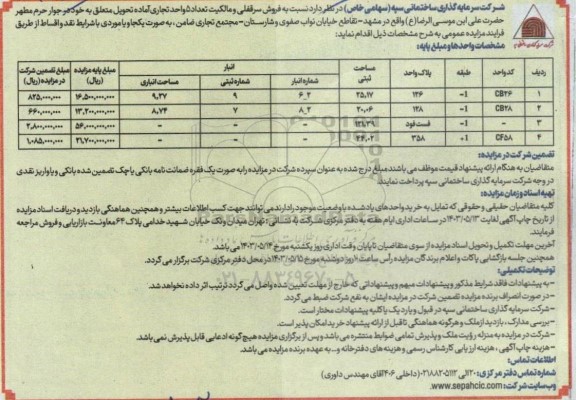 شرکت سرمایه گذاری ساختمانی سپه (سهامی خاص) در نظر دارد نسبت به فروش سرقفلی و مالکیت تعداد ۵ واحد تجاری آماده تحویل متعلق به خود در جوار حرم مطهر
حضرت علی ابن موسی الرضا(ع) واقع در مشهد - تقاطع خیابان نواب صفوی و شارستان - مجتمع تجاری ضامن، به صورت یکجا و یا موردی با شرایط نقد و اقساط از طریق
فرایند مزایده عمومی به شرح مشخصات ذیل اقدام نماید:
مشخصات واحدها و مبلغ پایه:
ردیف کد واحد طبقه پلاک واحد مساحت ثبتی انبار مبلغ پایه مزایده (ریال) مبلغ تضمین شرکت در مزایده (ریال)
شماره انبار شماره ثبتی مساحت انباری
۱ CB26 -1 ۱۴۶ ۲۵,۱۷ ۶_۲ ۹ ۹,۲۷ ۱۶,۵۰۰,۰۰۰,۰۰۰ ۸۲۵,۰۰۰,۰۰۰
۲ CB28 -1 ۱۴۸ ۲۰,۰۶ ۸_۲ ۷ ۸,۷۴ ۱۳,۲۰۰,۰۰۰,۰۰۰ ۶۶۰,۰۰۰,۰۰۰
۳ - -1 فست فود ۱۲۱,۳۹ - - - ۵۶,۰۰۰,۰۰۰,۰۰۰ ۲,۸۰۰,۰۰۰,۰۰۰
۴ CF58 -1 ۳۵۸ ۲۶,۰۲ - - - ۲۱,۷۰۰,۰۰۰,۰۰۰ ۱,۰۸۵,۰۰۰,۰۰۰
تضمین شرکت در مزایده:
متقاضیان به هنگام ارائه پیشنهاد قیمت موظف می باشند مبلغ درج شده به عنوان سپرده شرکت در مزایده را به صورت یک فقره ضمانت نامه بانکی یا چک تضمین شده بانکی و یا واریز نقدی
در وجه شرکت سرمایه گذاری ساختمانی سپه پرداخت نمایند.
تهیه اسناد و زمان مزایده:
کلیه متقاضیان حقیقی و حقوقی که تمایل به خرید واحدهای یادشده با وضعیت موجود را دارند می توانند جهت کسب اطلاعات بیشتر و همچنین هماهنگی بازدید و دریافت اسناد مزایده
از تاریخ چاپ آگهی لغایت ۱۴۰۳/۰۵/۱۳ در ساعات اداری ایام هفته به دفتر مرکزی شرکت به نشانی: تهران میدان ونک خیابان شهید خدامی پلاک ۶۴ معاونت بازاریابی و فروش مراجعه
فرمایند.
آخرین مهلت تکمیل و تحویل اسناد مزایده از سوی متقاضیان تا پایان وقت اداری روز یکشنبه مورخ ۱۴۰۳/۰۵/۱۴ می باشد.
همچنین جلسه بازگشایی پاکات و اعلام برندگان مزایده رأس ساعت ۱۰ روز دوشنبه مورخ ۱۴۰۳/۰۵/۱۵ در محل دفتر مرکزی شرکت برگزار می گردد.
توضیحات تکمیلی:
- به پیشنهادات فاقد شرایط مذکور و پیشنهادات مبهم و پیشنهاداتی که خارج از مهلت تعیین شده واصل می گردد ترتیب اثر داده نخواهد شد.
- در صورت انصراف برنده مزایده تضمین شرکت در مزایده ایشان به نفع شرکت ضبط می گردد.
- شرکت سرمایه گذاری ساختمانی سپه در قبول و یا رد یک یا کلیه پیشنهادات مختار است.
- بررسی مدارک، بازدید از ملک و هرگونه هماهنگی تا قبل از ارائه پیشنهاد خرید امکان پذیر است.
- شرکت در مزایده به منزله رؤیت ملک و پذیرش تمامی ضوابط منتشره می باشد و پس از برگزاری مزایده هیچ گونه ادعایی قابل پذیرش نمی باشد.
- هزینه چاپ آگهی، هزینه ارزیابی کارشناس رسمی و هزینه های دفترخانه و... به عهده برنده مزایده می باشد.
اطلاعات تماس:
شماره تماس دفتر مرکزی: ۲۰ الی ۰۲۱۸۸۲۰۵۱۱۲ (داخلی ۴۰۶ آقای مهندس داوری)
وب سایت شرکت: www.sepahcic.com
۰۲۱-۸۸۳۴۹۶۷۰-۵